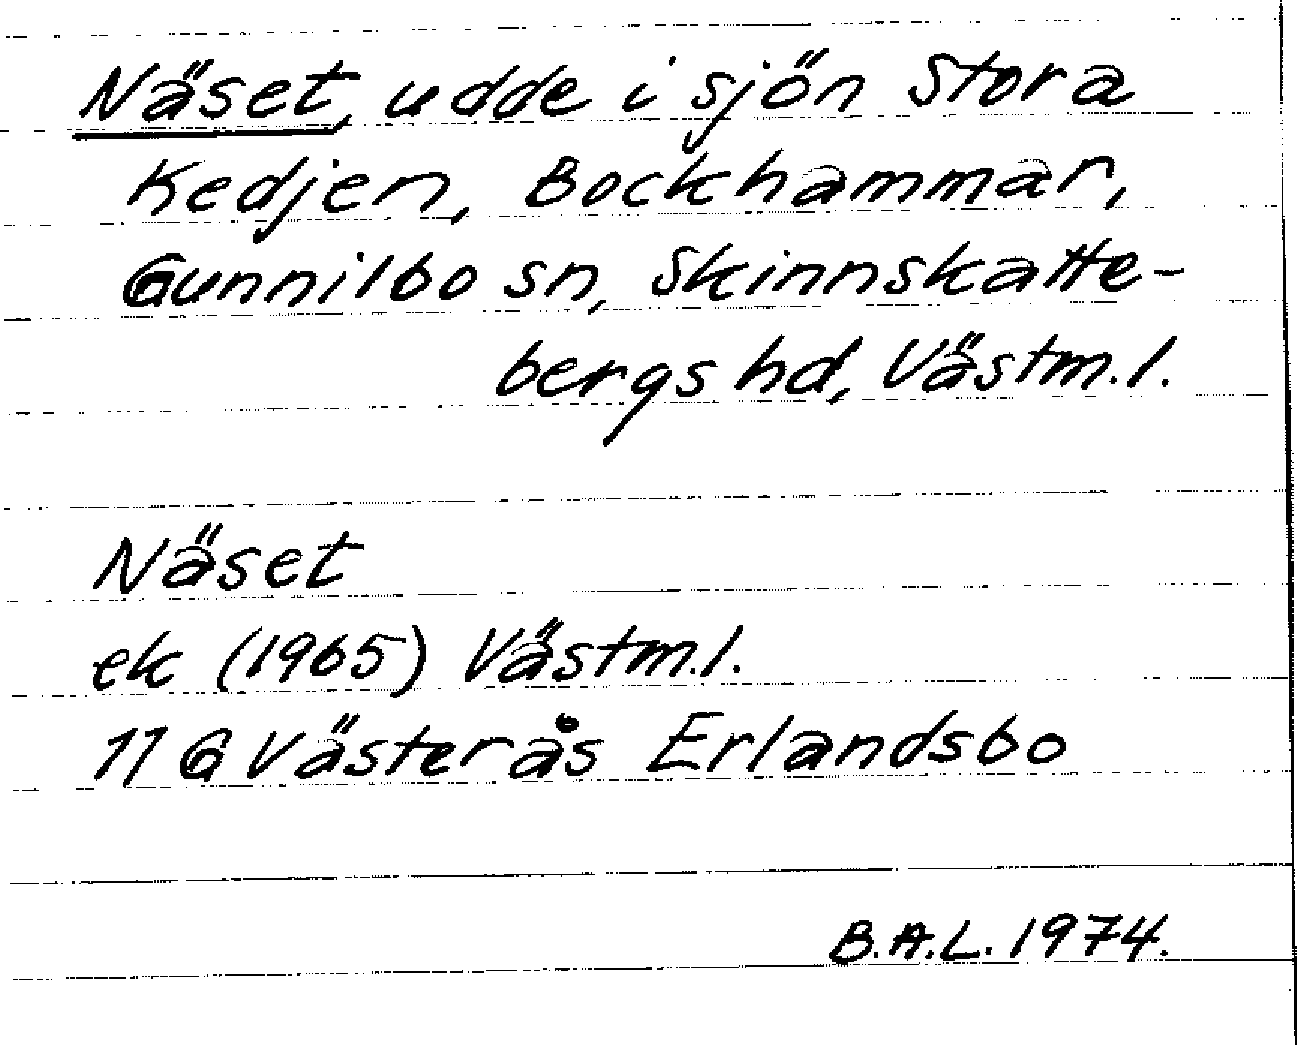 Näset, udde i sjön Stora
Kedjen, Bockhammar,
Gunnilbo sn, Skinnskatte-
bergs hd, Västm.l.
Näset
ek (1965) Västm.l.
11 G Västerås Erlandsbo
B.A.L. 1974.